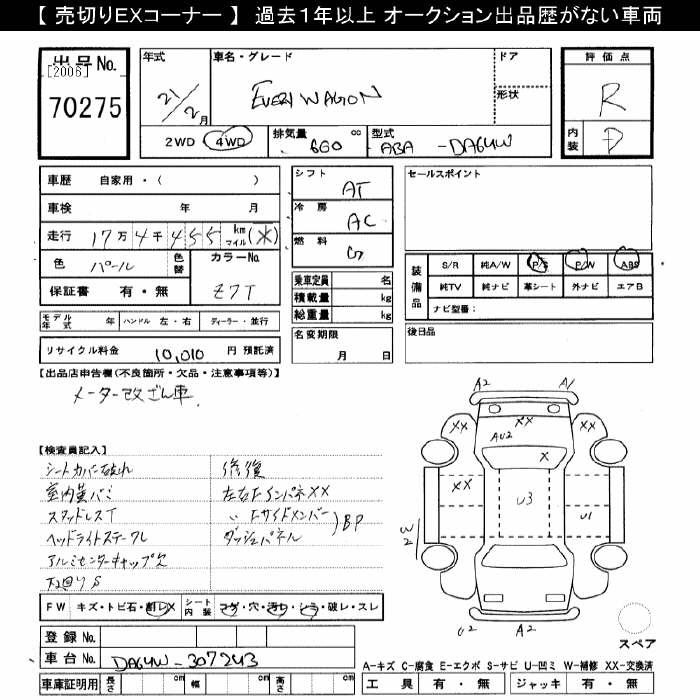 【 売切りEXコーナー 】 過去1年以上 オークション出品歴がない車両
出品No.
[2006]
70275
年式
21/2月
車名・グレード
EVERY WAGON
ドア
形状
評価点
R
内装
D
2WD 4WD
排気量 660 cc
型式 ABA -DA64W
車歴 自家用・( )
車検 年 月
走行 17万4千455 km マイル(※)
色 パール
色替
カラーNo.
Z7T
保証書 有・無
モデル年式 年
ハンドル 左・右
ディーラー・並行
リサイクル料金 10,010 円 預託済
シフト AT
冷房 AC
燃料 G
乗車定員 名
積載量 kg
総重量 kg
名変期限
月 日
セールスポイント
装備品
S/R 純A/W P/S P/W ABS
純TV 純ナビ 革シート 外ナビ エアB
ナビ型番：
後日品
【出品店申告欄(不良箇所・欠品・注意事項等)】
メーター改ざん車
【検査員記入】
シートカバー破れ
室内黄バミ
スタッドレスT
ヘッドライトステークレ
アルミセンターキャップ欠
下廻りS
修復
左右Fインパネ XX
〃 Fサイドメンバー
BP
ダッシュパネル
A2
A1
XX
XX
XX
AU2
X
XX
U3
U1
W2
U2
A2
スペア
FW キズ・トビ石・割レX
シート内装 コゲ・穴・汚レ・シミ・破レ・スレ
登録No.
車台No. DA64W-307243
車庫証明用 長さ cm 幅 cm 高さ cm
A-キズ C-腐食 E-エクボ S-サビ U-凹ミ W-補修 XX-交換済
工具 有・無 ジャッキ 有・無